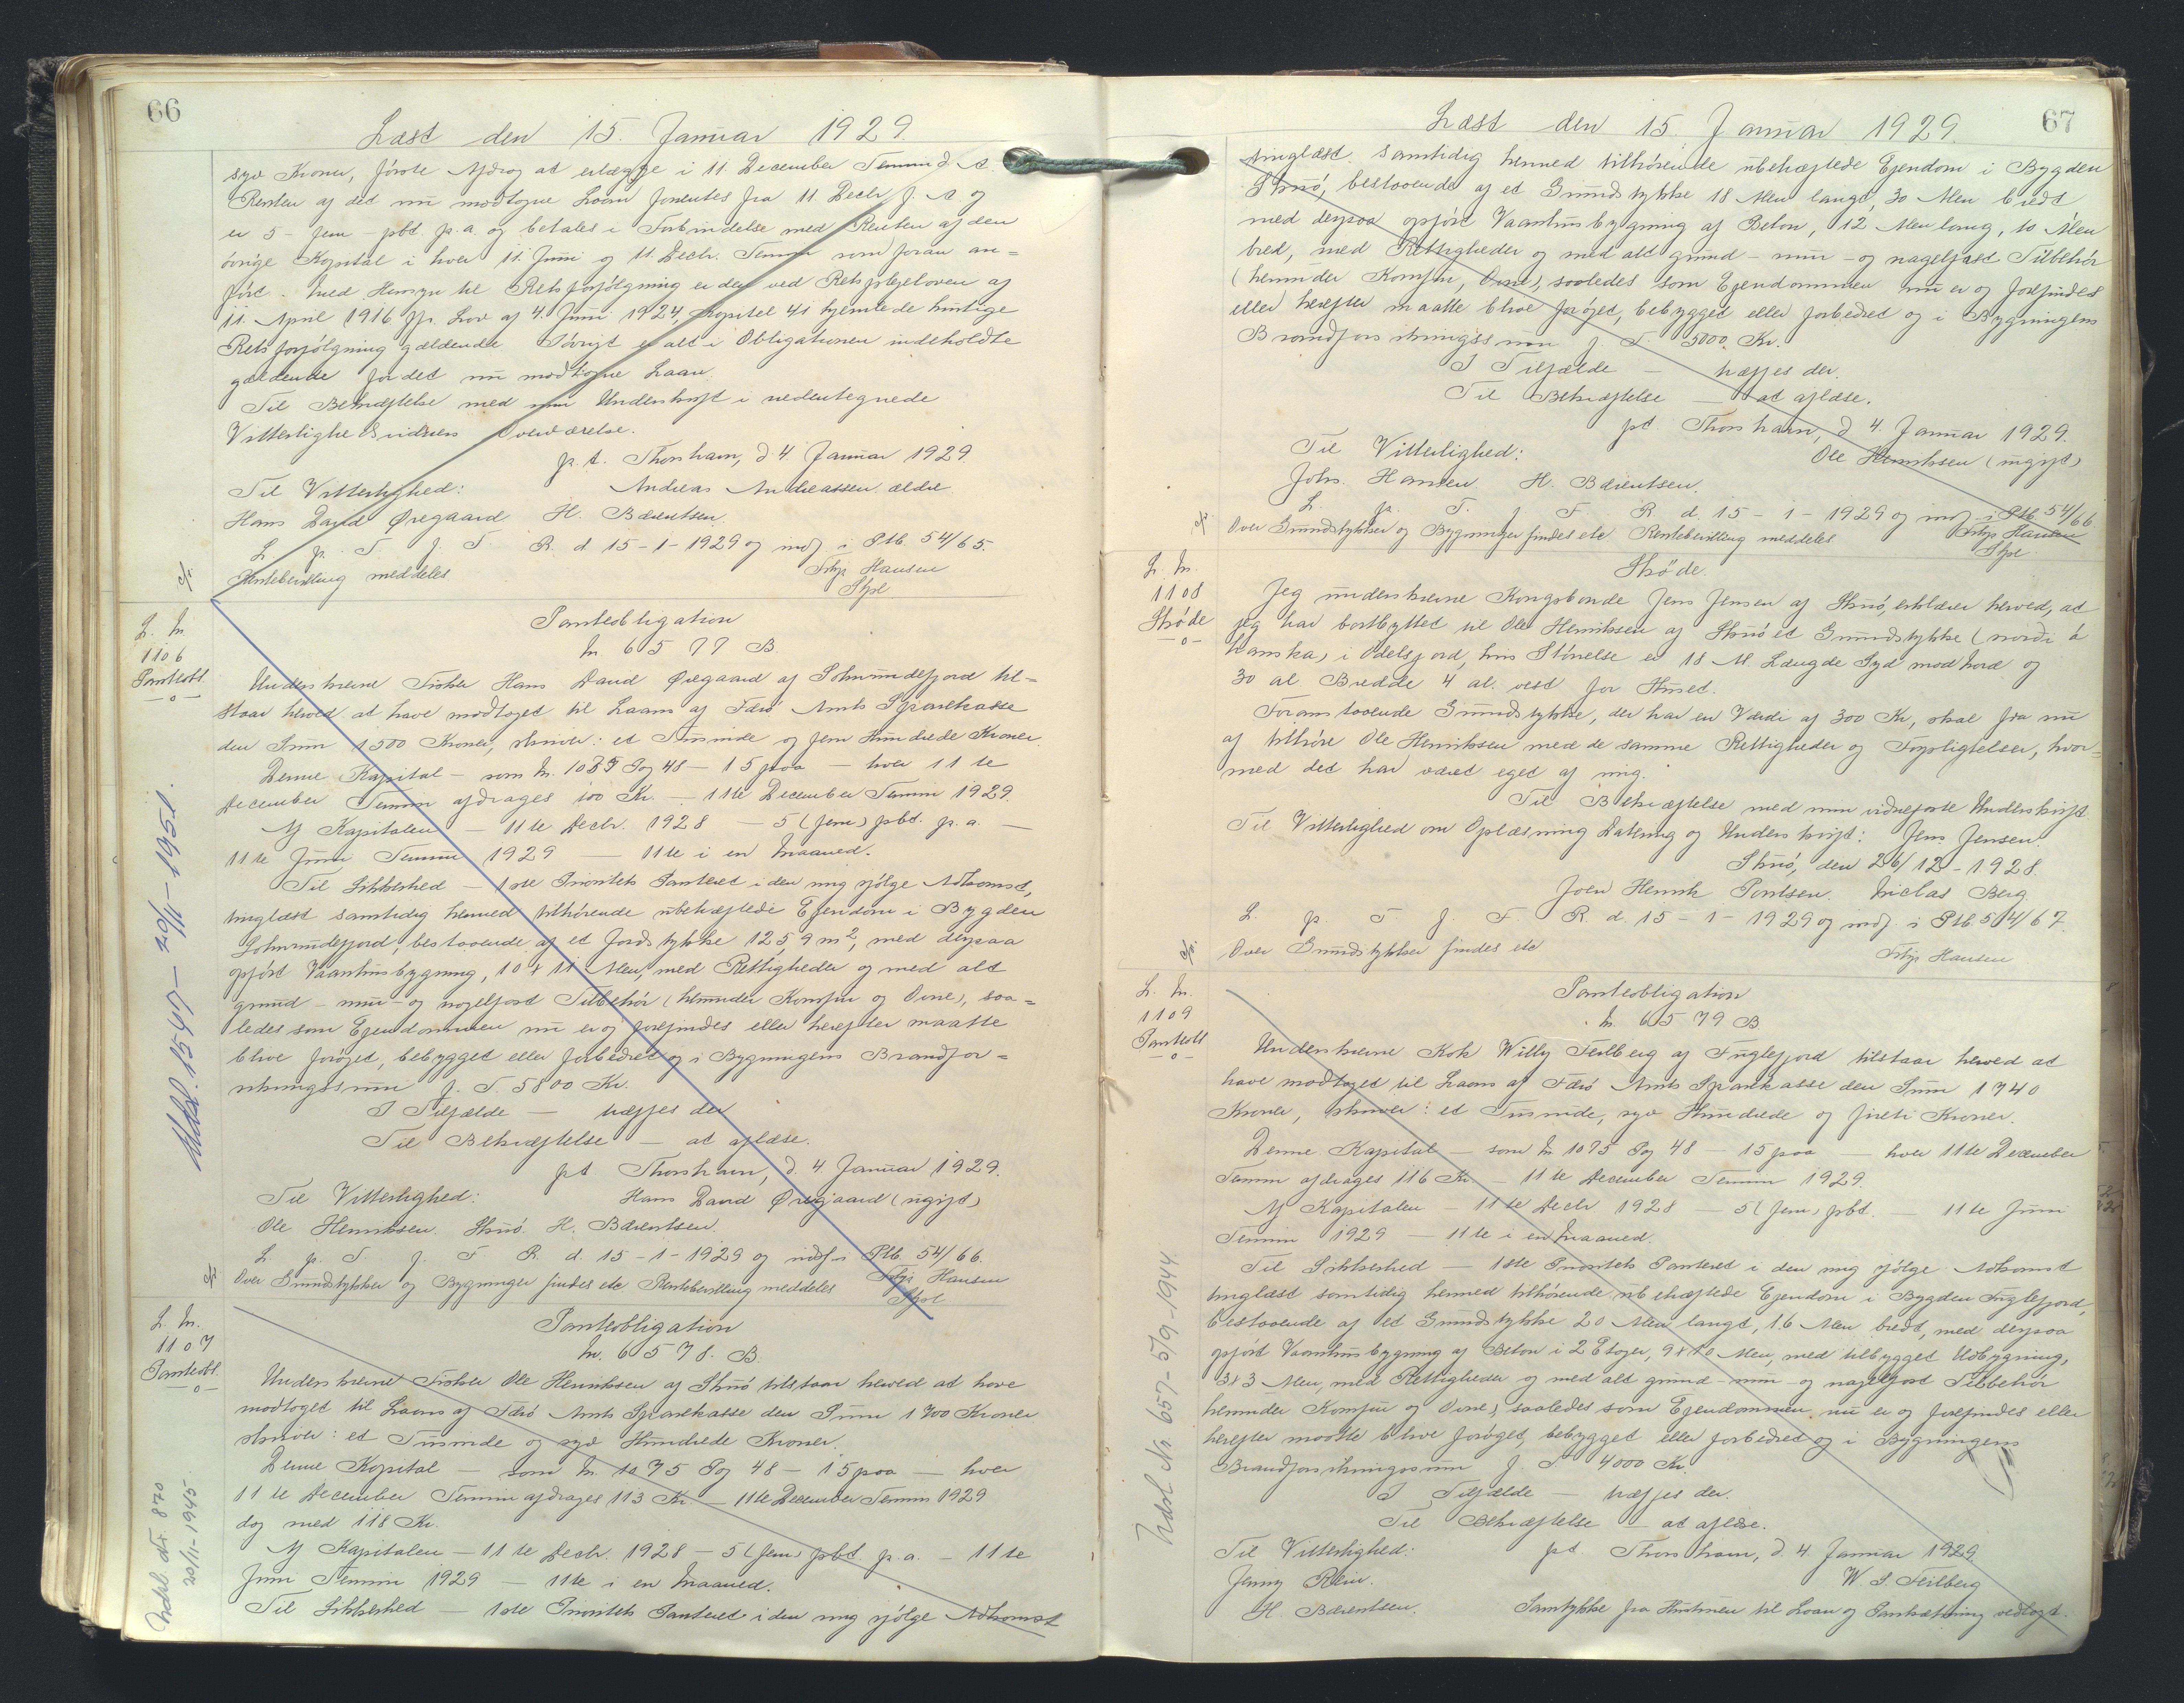 66
Læst den 15. Januar 1929.
syv Kroner, første Afdrag at erlægge i 11. December Termin d. A.
Renten af det nu modtagne Laan forrentes fra 11. Decbr. f. A og
er 5 - fem - pCt. p. a. og betales i Forbindelse med Renten af den
øvrige Kapital i hver 11. Juni og 11. Decbr. Termin som foran an=
ført. Med Hensyn til Retsforfølgning er den ved Retsplejeloven af
11. April 1916 jfr. Lov af 4. Juni 1924, Kapitel 41 hjemlede hurtige
Retsforfølgning gældende Iøvrigt er alt i Obligationen indeholdte
gældende for det nu modtagne Laan.
Til Bekræftelse med min Underskrift i nedentegnede
Vitterligheds vidners Overværelse.
p. t. Thorshavn, d. 4. Januar 1929
Til Vitterlighed: Andreas Andreassen ældre
Hans David Øregaard H. Bærentsen.
L. p. T. f. F. R. d. 15-1-1929 og indf. i Ptb. 54/65.
Rentebevilling meddeles Hansen
L. Nr.
1106
Panteobl.
-o-
Panteobligation
Nr. 6577 B.
Underskrevne Fisker Hans David Øregaard af Sohmundefjord til=
staar herved at have modtaget til Laans af Færø Amts Sparekasse
den Sum 1500 Kroner, skriver: et Tusinde og fem Hundrede Kroner.
Denne Kapital - som Nr. 1075 Pag 48 - 15 paa - hver 11 te
December Termin afdrages 100 Kr. - 11te December Termin 1929.
Af Kapitalen - 11 te Decbr. 1928 - 5 (fem) pCt. p. a. -
11 te Juni Termin 1929 - 11te i en Maaned.
Til Sikkerhed - 1ste Prioritets Panteret i den mig ifølge Adkomst,
tinglæst samtidig hermed tilhørende ubehæftede Ejendom i Bygden
Sohmundefjord, bestaaende af et Jordstykke 125,9 m², med derpaa
opført Vaaningsbygning, 10 x 11 Alen, med Rettigheder og med alt
grund - mur - og nagelfast Tilbehør (herunder Komfur og Ovne), saa=
ledes som Ejendommen nu er og forefindes eller herefter maatte
blive forøget, bebygget eller forbedret og i Bygningens Brandfor=
sikringssum f. T. 5800 Kr.
I Tilfælde - træffes der
Til Bekræftelse - at aflæse.
pt. Thorshavn, d. 4. Januar 1929.
Til Vitterlighed: Hans David Øregaard (ugift)
Ole Henriksen. Skuø. H. Bærentsen.
L. p. T. f. F. R. d. 15-1-1929 og indf. i Ptb. 54/66.
Over Grundstykker og Bygninger findes etc Rentebevilling meddeles Hansen
Udsl. 1547 - 20/11-1951.
L. Nr.
1107
Panteobl.
-o-
Panteobligation
Nr. 6578. B.
Underskrevne Fisker Ole Henriksen af Skuø tilstaar herved at have
modtaget til Laans af Færø Amts Sparekasse den Sum 1700 Kroner
skriver: et Tusinde og syv Hundrede Kroner.
Denne Kapital - som Nr. 1075 Pag 48 - 15 paa - hver
11 te December Termin afdrages 113 Kr - 11te December Termin 1929
dog med 118 Kr.
Af Kapitalen - 11 te Decbr. 1928 - 5 (fem) pCt. p. a. - 11te
Juni Termin 1929 - 11te i en Maaned.
Til Sikkerhed - 1ste Prioritets Panteret i den mig ifølge Adkomst
Udsl. Nr. 870
20/11-1945
67
Læst den 15. Januar 1929.
tinglæst samtidig hermed tilhørende ubehæftede Ejendom i Bygden
Skuø, bestaaende af et Grundstykke 18 Alen langt, 30 Alen bredt
med derpaa opført Vaaningsbygning af Beton, 12 Alen lang, 10 Alen
bred, med Rettigheder og med alt grund - mur - og nagelfast Tilbehør
(herunder Komfur, Ovne), saaledes som Ejendommen nu er og forefindes
eller herefter maatte blive forøget, bebygget eller forbedret og i Bygningens
Brandforsikringssum f. T. 5000 Kr.
I Tilfælde - træffes der.
Til Bekræftelse - at aflæse.
pt. Thorshavn, d. 4. Januar 1929.
Til Vitterlighed: Ole Henriksen (ugift)
Johs. Hansen. H. Bærentsen.
L. p. T. f. F. R. d. 15-1-1929 og indf. i Ptb. 54/66
Over Grundstykker og Bygninger findes etc Rentebevilling meddeles Hansen
L. Nr.
1108
Skøde
-o-
Skøde.
Jeg underskrevne Kongsbonde Jens Jensen af Skuø, erklærer herved, at
jeg har bortbyttet til Ole Henriksen af Skuø et Grundstykke (nordr á
Hamska) i Odelsjord, hvis Størrelse er 18 Al. Længde Syd mod Nord og
30 al. Bredde 4 al. vest for Huset.
Foranstaaende Grundstykke, der har en Værdi af 300 Kr, skal fra nu
af tilhøre Ole Henriksen med de samme Rettigheder og Forpligtelser, hvor-
med det har været eget af mig.
Til Bekræftelse med min vidnefaste Underskrift
Til Vitterlighed om Oplæsning Datering og Underskrift: Jens Jensen.
Skuø, den 26/12-1928.
Joen Henrik Poulsen. Niclas Berg.
L. p. T. f. F. R. d. 15-1-1929 og indf. i Ptb. 54/67.
Over Grundstykker findes etc
Hansen
L. Nr.
1109
Panteobl
-o-
Panteobligation
Nr. 6579 B
Underskrevne Kok Willy Feilberg af Fuglefjord tilstaar herved at
have modtaget til Laans af Færø Amts Sparekasse den Sum 1740
Kroner, skriver: et Tusinde, syv Hundrede og fireti Kroner.
Denne Kapital - som Nr 1075 Pag 48 - 15 paa - hver 11te December
Termin afdrages 116 Kr - 11 te December Termin 1929.
Af Kapitalen - 11 te Decbr 1928 - 5 (fem) pCt. - 11te Juni
Termin 1929 - 11te i en Maaned.
Til Sikkerhed - 1ste Prioritets Panteret i den mig ifølge Adkomst
tinglæst samtidig hermed tilhørende ubehæftede Ejendom i Bygden Fuglefjord,
bestaaende af et Grundstykke 20 Alen langt, 16 Alen bredt, med derpaa
opført Vaaningsbygning af Beton i 2 Etager, 9 x 10 Alen, med tilbygget Udbygning,
3x3 Alen, med Rettigheder og med alt grund - mur - og nagelfast Tilbehør
herunder Komfur og Ovne), saaledes som Ejendommen nu er og forefindes eller
herefter maatte blive forøget, bebygget eller forbedret og i Bygningens
Brandforsikringssum f. T. 4000 Kr.
I Tilfælde - træffes der.
Til Bekræftelse - at aflæse.
Til Vitterlighed: pt. Thorshavn, d. 4. Januar 1929
Jenny Rein. W. S. Feilberg
H. Bærentsen. Samtykke fra Hustruen til Laan og Pantsætning vedlagt.
Udsl Nr. 657 - 5/9-1944